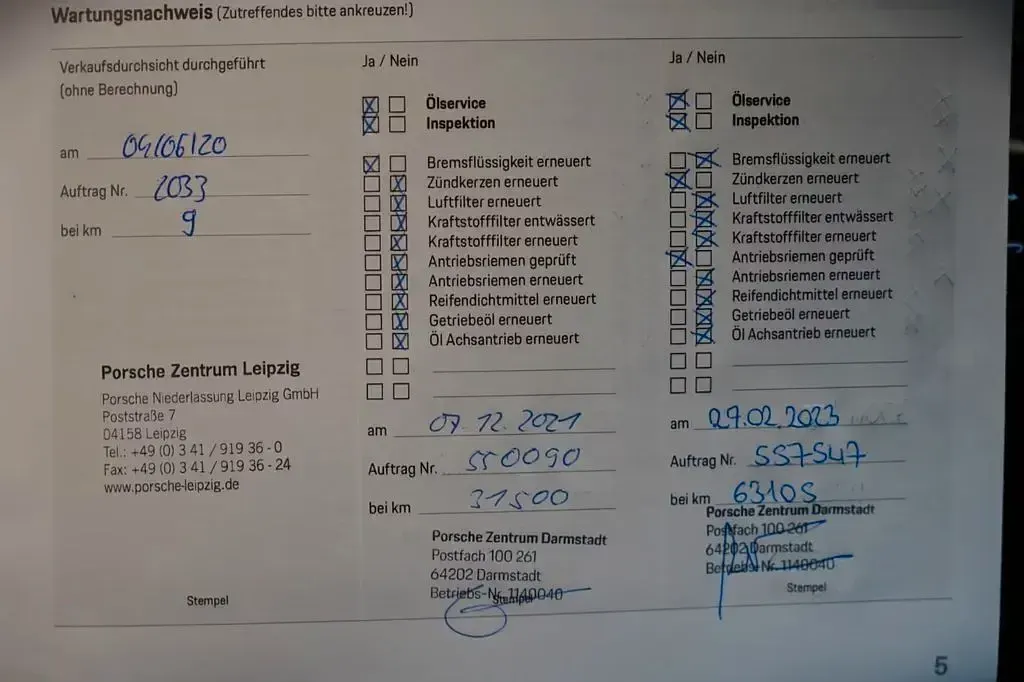 Wartungsnachweis (Zutreffendes bitte ankreuzen!)
Verkaufsdurchsicht durchgeführt
(ohne Berechnung)
am 04/06/20
Auftrag Nr. 2033
bei km 9
Porsche Zentrum Leipzig
Porsche Niederlassung Leipzig GmbH
Poststraße 7
04158 Leipzig
Tel.: +49 (0) 3 41 / 919 36 - 0
Fax: +49 (0) 3 41 / 919 36 - 24
www.porsche-leipzig.de
Stempel
Ja / Nein
Ölservice
Inspektion
Bremsflüssigkeit erneuert
Zündkerzen erneuert
Luftfilter erneuert
Kraftstofffilter entwässert
Kraftstofffilter erneuert
Antriebsriemen geprüft
Antriebsriemen erneuert
Reifendichtmittel erneuert
Getriebeöl erneuert
Öl Achsantrieb erneuert
am 07.12.2021
Auftrag Nr. 550090
bei km 31500
Porsche Zentrum Darmstadt
Postfach 100 261
64202 Darmstadt
Betriebs-Nr. 1140040
Stempel
Ja / Nein
Ölservice
Inspektion
Bremsflüssigkeit erneuert
Zündkerzen erneuert
Luftfilter erneuert
Kraftstofffilter entwässert
Kraftstofffilter erneuert
Antriebsriemen geprüft
Antriebsriemen erneuert
Reifendichtmittel erneuert
Getriebeöl erneuert
Öl Achsantrieb erneuert
am 27.02.2023
Auftrag Nr. 557547
bei km 63105
Porsche Zentrum Darmstadt
Postfach 100 261
64202 Darmstadt
Betriebs-Nr. 1140040
Stempel
5